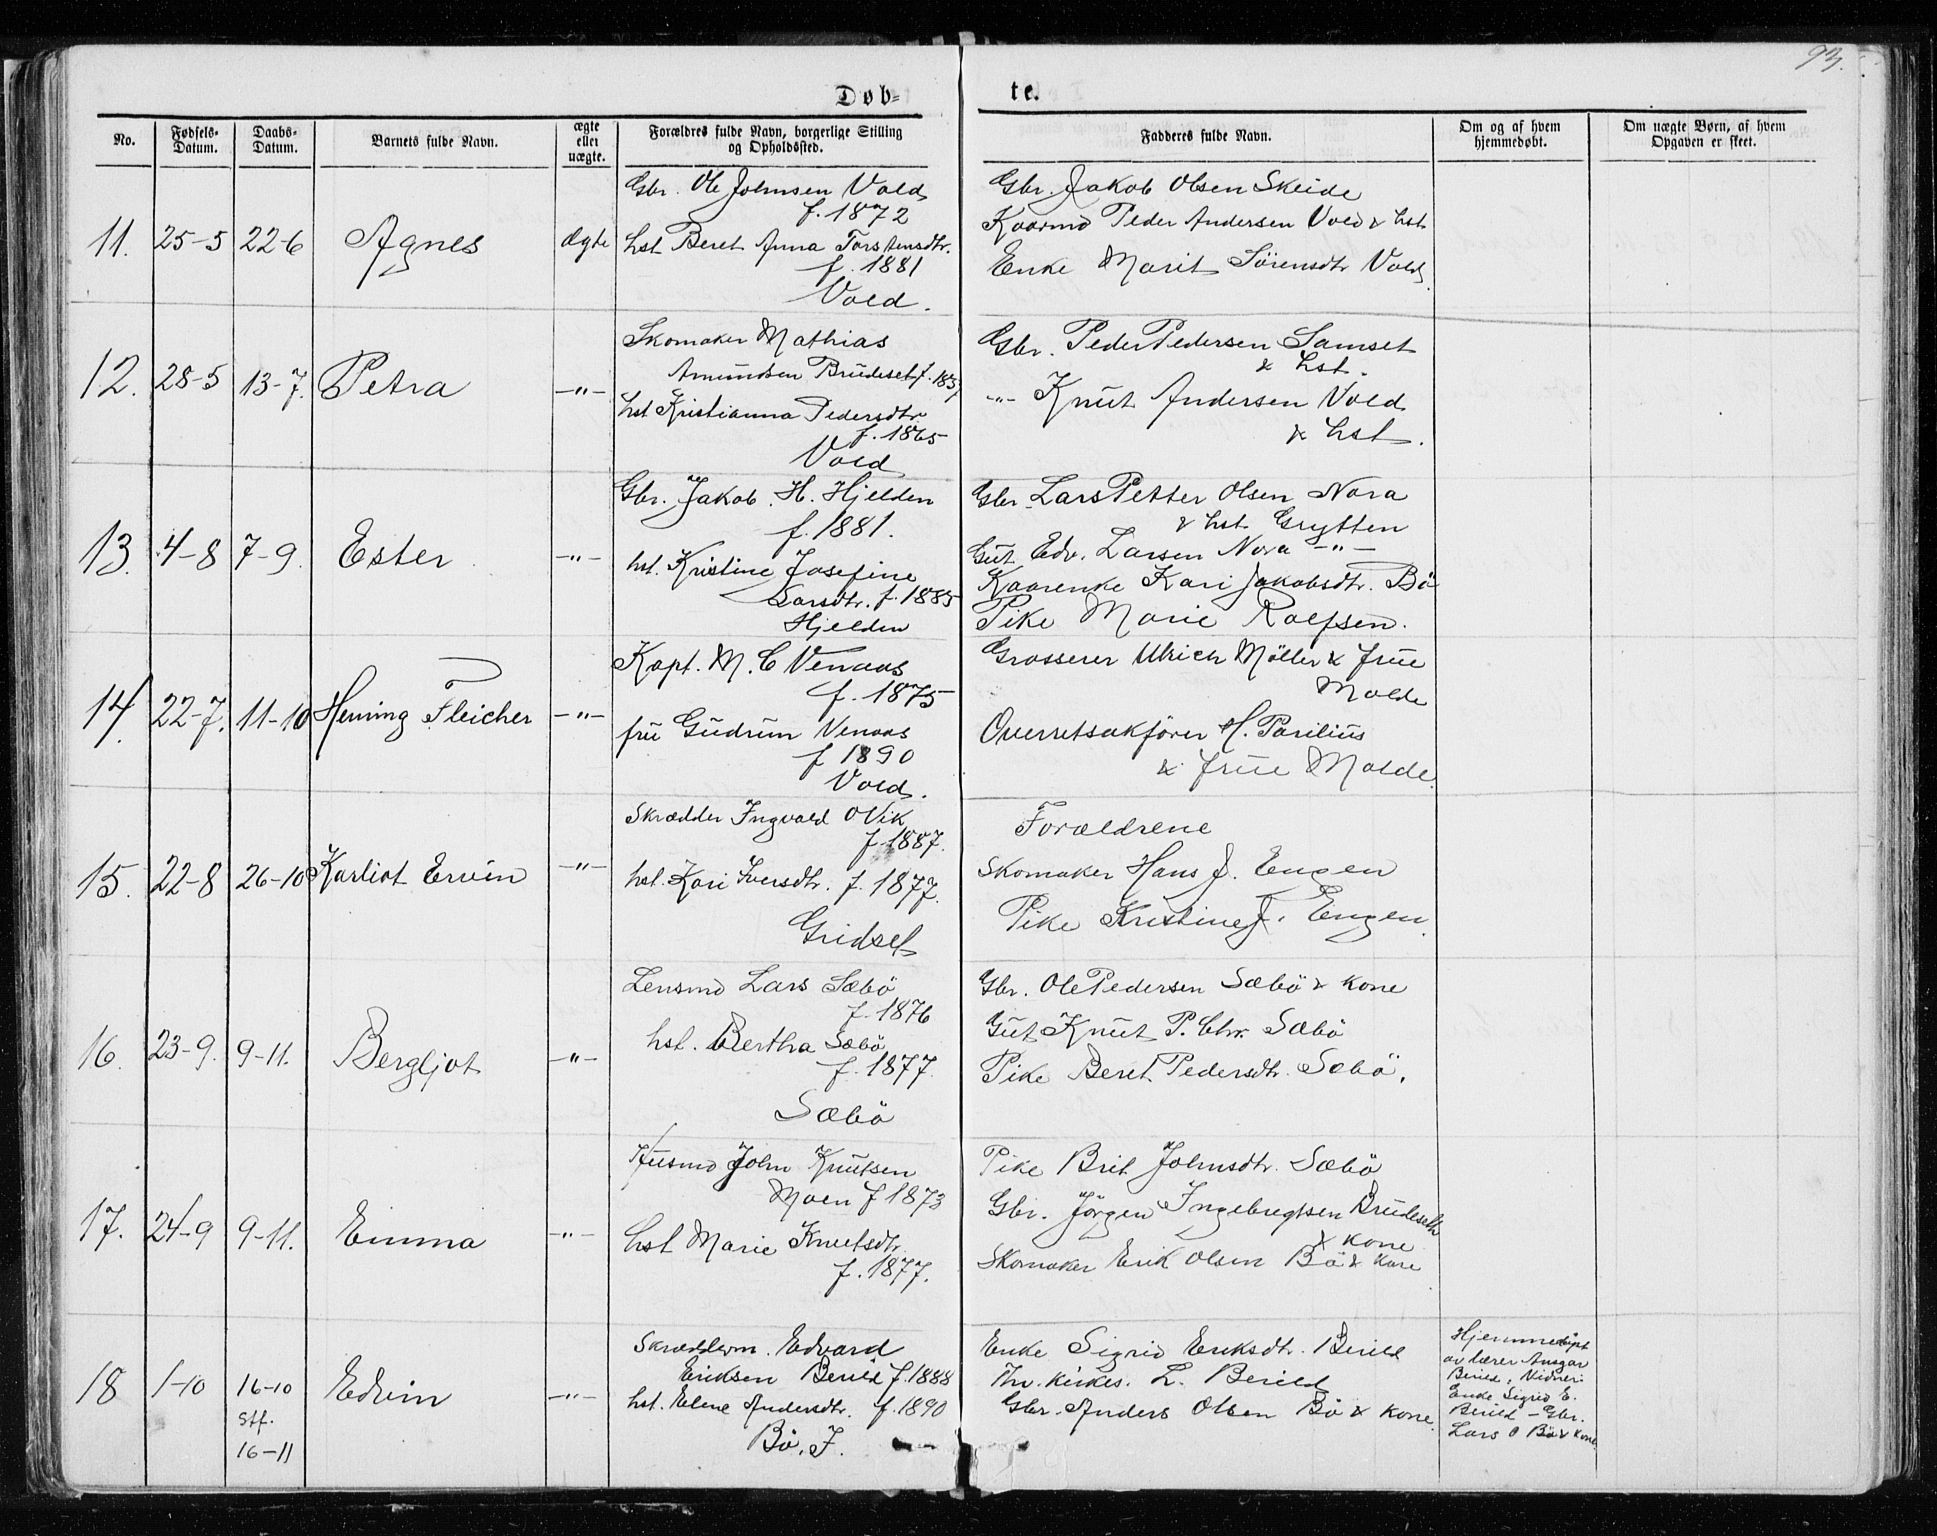 93.
Døb=
te.
No.
Fødsels-
Datum.
Daabs-
Datum.
Barnets fulde Navn.
ægte
eller
uægte.
Forældres fulde Navn, borgerlige Stilling
og Opholdssted.
Fadderes fulde Navn.
Om og af hvem
hjemmedøbt.
Om uægte Børn, af hvem
Opgaven er skeet.
11. 25-5 22-6 Agnes ægte
Gbr. Ole Johnsen Vold
f. 1872
hst Beret Anna Torstensdtr.
f. 1881
Vold.
Gbr. Jakob Olsen Skeide
Kaarmd Peder Andersen Vold & hst
Enke Marit Sörensdtr Vold.
12. 28-5 13-7. Petra -"-
Skomaker Mathias
Amundsen Brudeset f. 1857
hst Kristianna Pedersdtr
f. 1865
Vold
Gbr. Peder Pedersen Samset
& hst.
-"- Knut Andersen Vold
& hst.
13. 4-8 7-9. Ester -"-
Gbr. Jakob H. Hjelden
f. 1881.
hst. Kristine Josefine
Larsdtr. f. 1885
Hjelden
Gbr. Lars Petter Olsen Nora
& hst. Grytten
Gut Edv. Larsen Nora -"-
Kaarenke Kari Jakobsdtr. Bö
Pike Marie Rolfsen.
14. 22-7. 11-10 Henning Fleicher -"-
Kapt. M. C Venaas
f. 1875
fru Gudrun Venaas
f 1890
Vold.
Grosserer Ulrich Möller & frue
Molde
Overretsakförer H. Parilius
& frue Molde.
15. 22-8 26-10 Karliot Ervin -"-
Skrædder Ingvald O Vik
f. 1887.
hst. Kari Iversdtr. f. 1877.
Gridset
Forældrene
Skomaker Hans J. Engen
Pike Kristine J. Engen.
16. 23-9. 9-11. Bergljot -"-
Lensmd Lars Sæbö
f. 1876
hst. Bertha Sæbö
f. 1877.
Sæbö
Gbr. Ole Pedersen Sæbö & kone
Gut Knut P. Chr. Sæbö
Pike Beret Pedersdtr. Sæbö.
17. 24-9 9-11. Emma -"-
Husmd John Knutsen
Moen f 1873
hst Marie Knutsdtr.
f. 1877.
Pike Brit Johnsdtr. Sæbö
Gbr. Jörgen Ingebregtsen Brudeseth
& kone
Skomaker Erik Olsen Bö & kone
18 1-10 16-10
stf.
16-11
Edvin -"-
Skrædderm. Edvard
Eriksen Berild f. 1888
hst. Elene Andersdtr. f. 1890
Bö, I.
Enke Sigrid Eriksdtr. Berild
Fhv. kirkes. L. Berild
Gbr. Anders Olsen Bö & kone.
Hjemmedöpt
av lærer Ansgar
Berild, Vidner:
Enke Sigrid E.
Berild - Gbr.
Lars O Bö & kone.